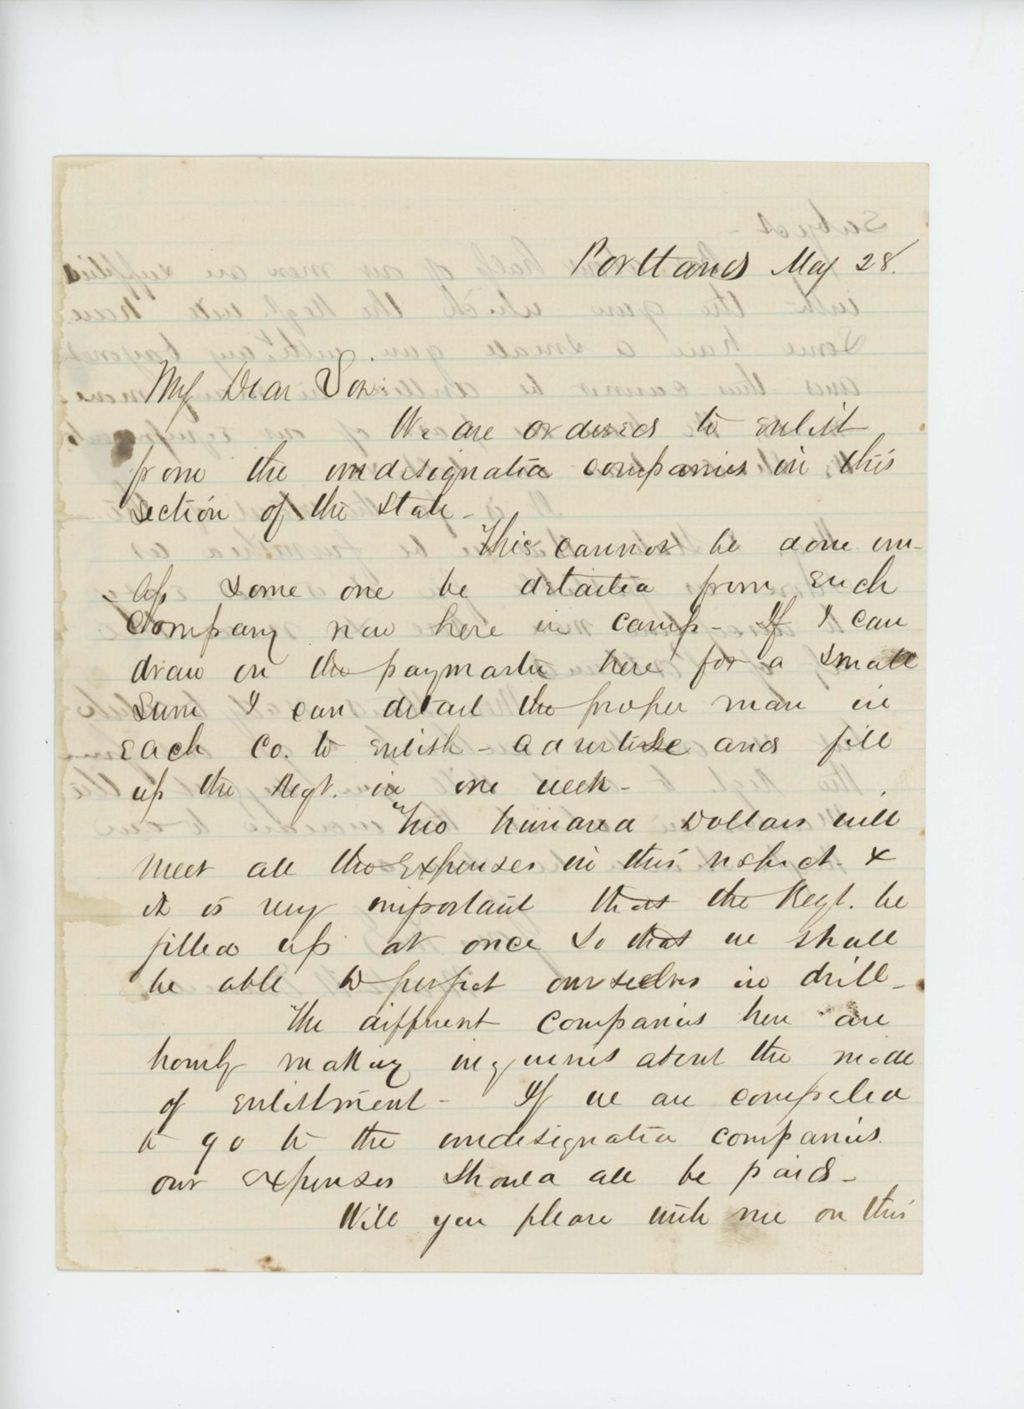 Portland May 28.
My Dear Sir:
We are ordered to enlist
from the undesignated companies in this
section of the State -
This cannot be done un-
less some one be detailed from each
Company now here in camp - If I can
draw on the paymaster here for a small
sum I can detail the proper man in
each Co. to enlist - advertise and fill
up the Regt. in one week -
Two hundred Dollars will
meet all the expenses in this respect &
it is very important that the Regt. be
filled up at once so that we shall
be able to perfect ourselves in drill -
The different Companies here are
hourly making inquiries about the mode
of enlistment - If we are compeled
to go to the undesignated companies
our expenses should all be paid -
Will you please write me on this